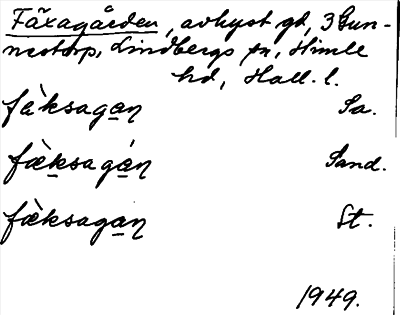 Fäxagården, avhyst gd, 3 Gun-
nestorp, Lindbergs sn, Himle
hd, Hall. l.
fæ̀ksagan̥ Sa.
fæ̀ksagán̥ Sand.
fæ̀ksagan̥ St.
1949.